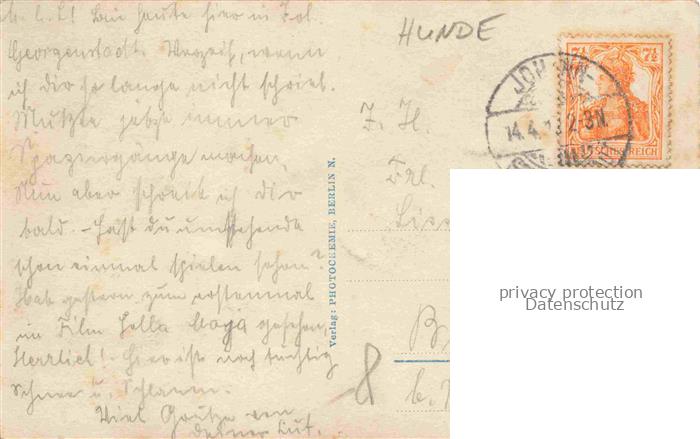 M. l. L! Bin heute hier in Joh.
Georgenstadt. Verzeih, wenn
ich dir so lange nicht schrieb.
Mußte jetzt immer
Spaziergänge machen.
Nun aber schreib ich dir
bald. – Hast du umstehende
schon einmal spielen sehen?
Hab gestern zum erstenmal
im Film Hella Moja gesehen,
Herrlich! Hier ist noch tüchtig
Schnee u. Schlamm.
Viel Grüße von
deiner
HUNDE
7½ 7½
JOHANN-
14.4. 2-3N.
DEUTSCHES REICH
F. H.
Frl.
Liss
B
b.
8
Verlag: PHOTOCHEMIE, BERLIN N.
privacy protection
Datenschutz